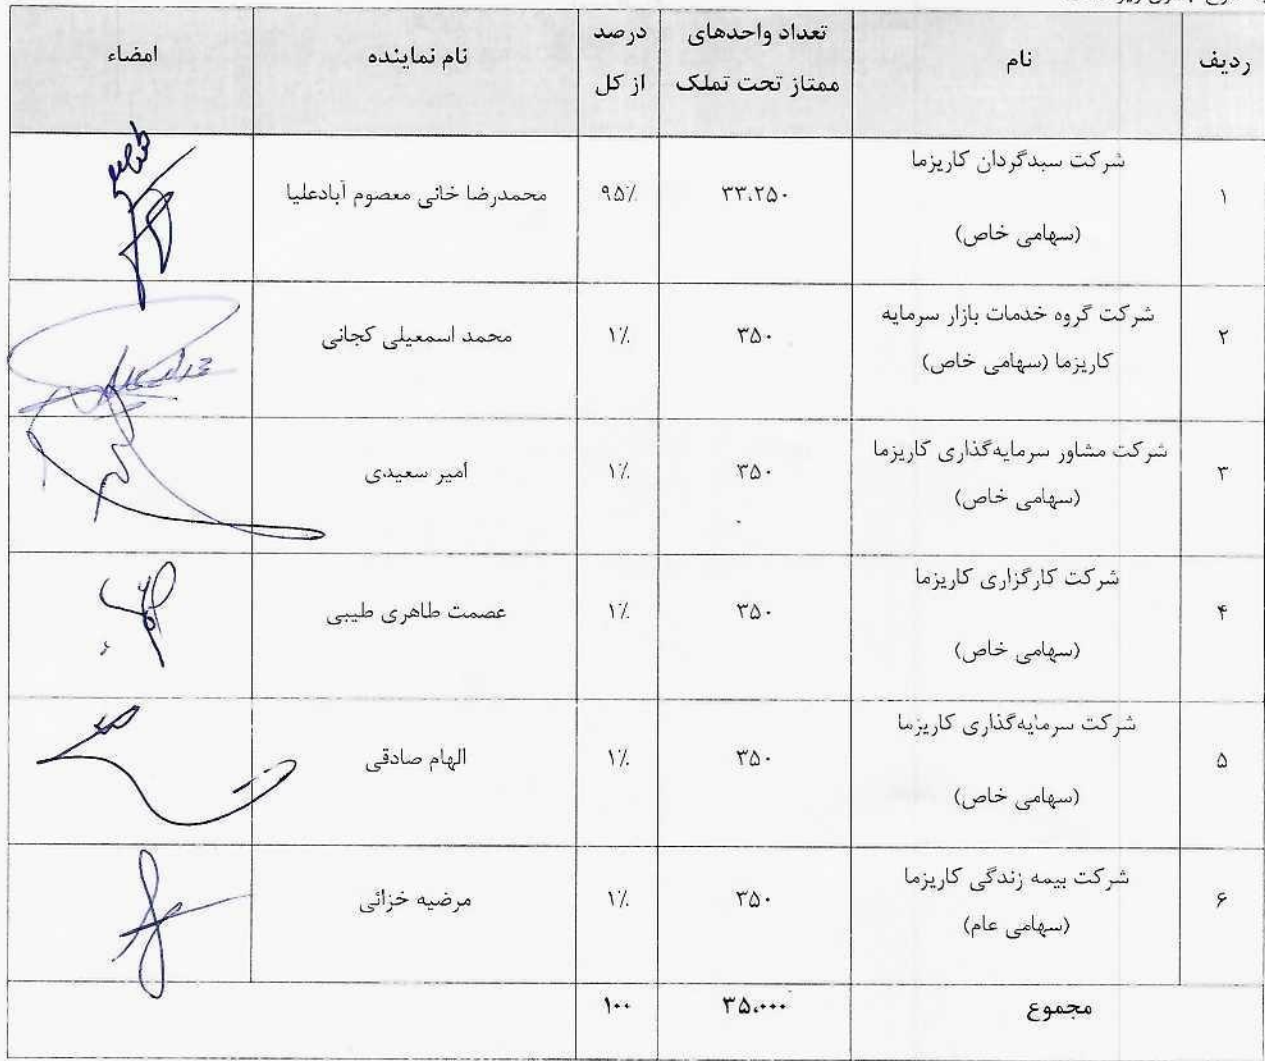 ردیف نام تعداد واحدهای ممتاز تحت تملک درصد از کل نام نماینده امضاء
۱ شرکت سبدگردان کاریزما (سهامی خاص) ۳۳،۲۵۰ ۹۵٪ محمدرضا خانی معصوم آبادعلیا
۲ شرکت گروه خدمات بازار سرمایه کاریزما (سهامی خاص) ۳۵۰ ۱٪ محمد اسمعیلی کجانی
۳ شرکت مشاور سرمایه‌گذاری کاریزما (سهامی خاص) ۳۵۰ ۱٪ امیر سعیدی
۴ شرکت کارگزاری کاریزما (سهامی خاص) ۳۵۰ ۱٪ عصمت طاهری طیبی
۵ شرکت سرمایه‌گذاری کاریزما (سهامی خاص) ۳۵۰ ۱٪ الهام صادقی
۶ شرکت بیمه زندگی کاریزما (سهامی عام) ۳۵۰ ۱٪ مرضیه خزائی
مجموع ۳۵،۰۰۰ ۱۰۰